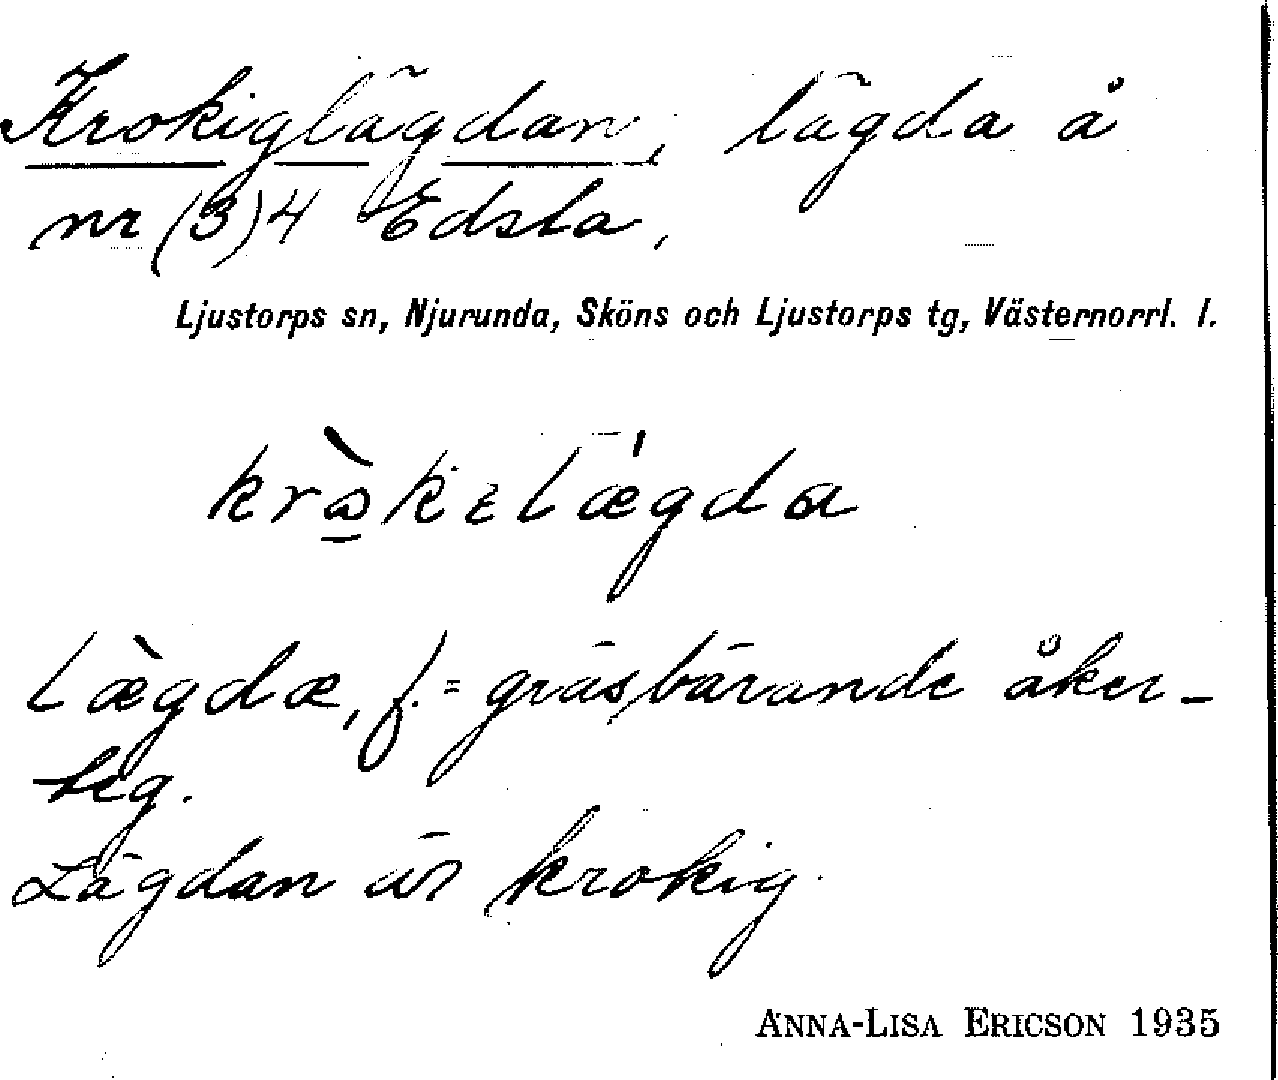 Krokiglägdan, lägda å
nr (3)4 Edsta,
Ljustorps sn, Njurunda, Sköns och Ljustorps tg, Västernorrl. l.
krò̱kɛlǽgda
læ̀gdæ, f. = gräsbärande åker-
teg.
Lägdan är krokig.
ANNA-LISA ERICSON 1935